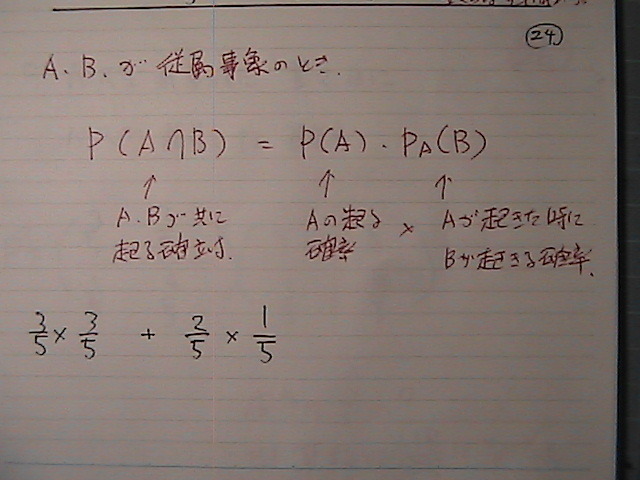 ㉔
A、B、が従属事象のとき.
P(A∩B) = P(A)・P_A(B)
↑ ↑ ↑
A.Bが共に Aの起る × Aが起きた時に
起る確立は. 確率 Bが起きる確率.
3/5 × 3/5 + 2/5 × 1/5